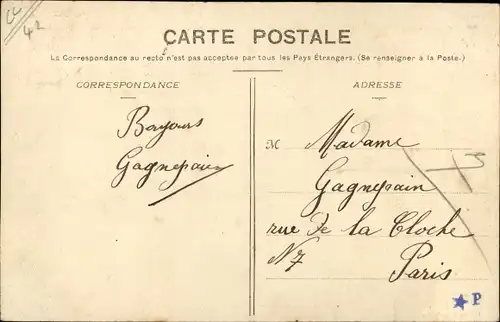 CC
42
CARTE POSTALE
La Correspondance au recto n'est pas acceptée par tous les Pays Étrangers. (Se renseigner à la Poste.)
CORRESPONDANCE
Bonjours
Gagnepain
ADRESSE
M Madame
Gagnepain
rue De la Cloche
N7
Paris
P